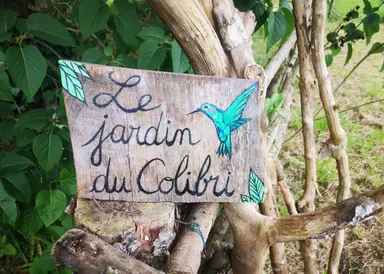 Le
jardin
du Colibri